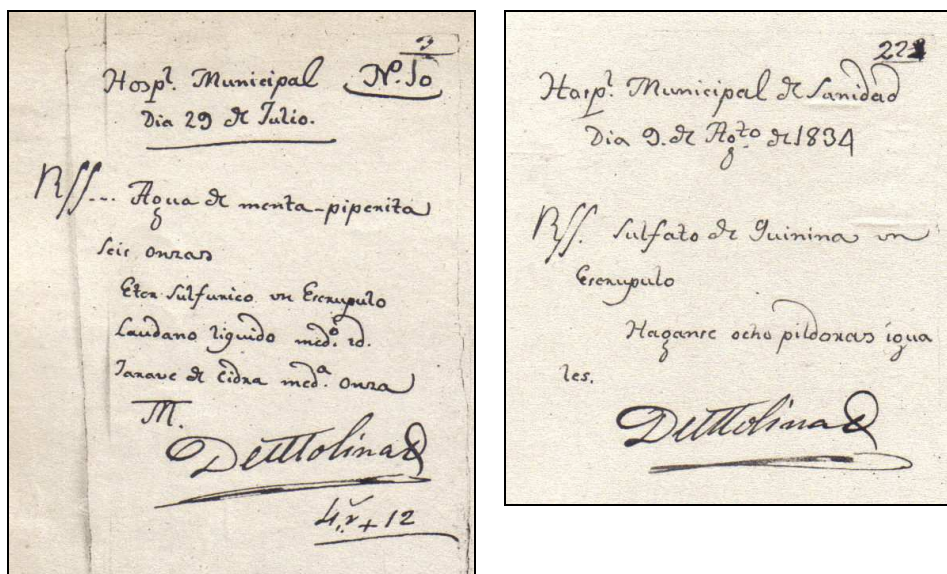 3
Hosp.l Municipal N.º 10
Dia 29 de Julio.
R//... Agua de menta-piperita
seis onzas
Eter sulfurico un Escrupulo
Laudano liquido med.o id.
Jarave de Cidra med.a onza
M.
De Molina
4 r.v + 12
Hosp.l Municipal de Sanidad
Dia 9. de Ag.to de 1834
R//. Sulfato de Quinina un
Escrupulo
Haganse ocho pildoras igua
les.
De Molina